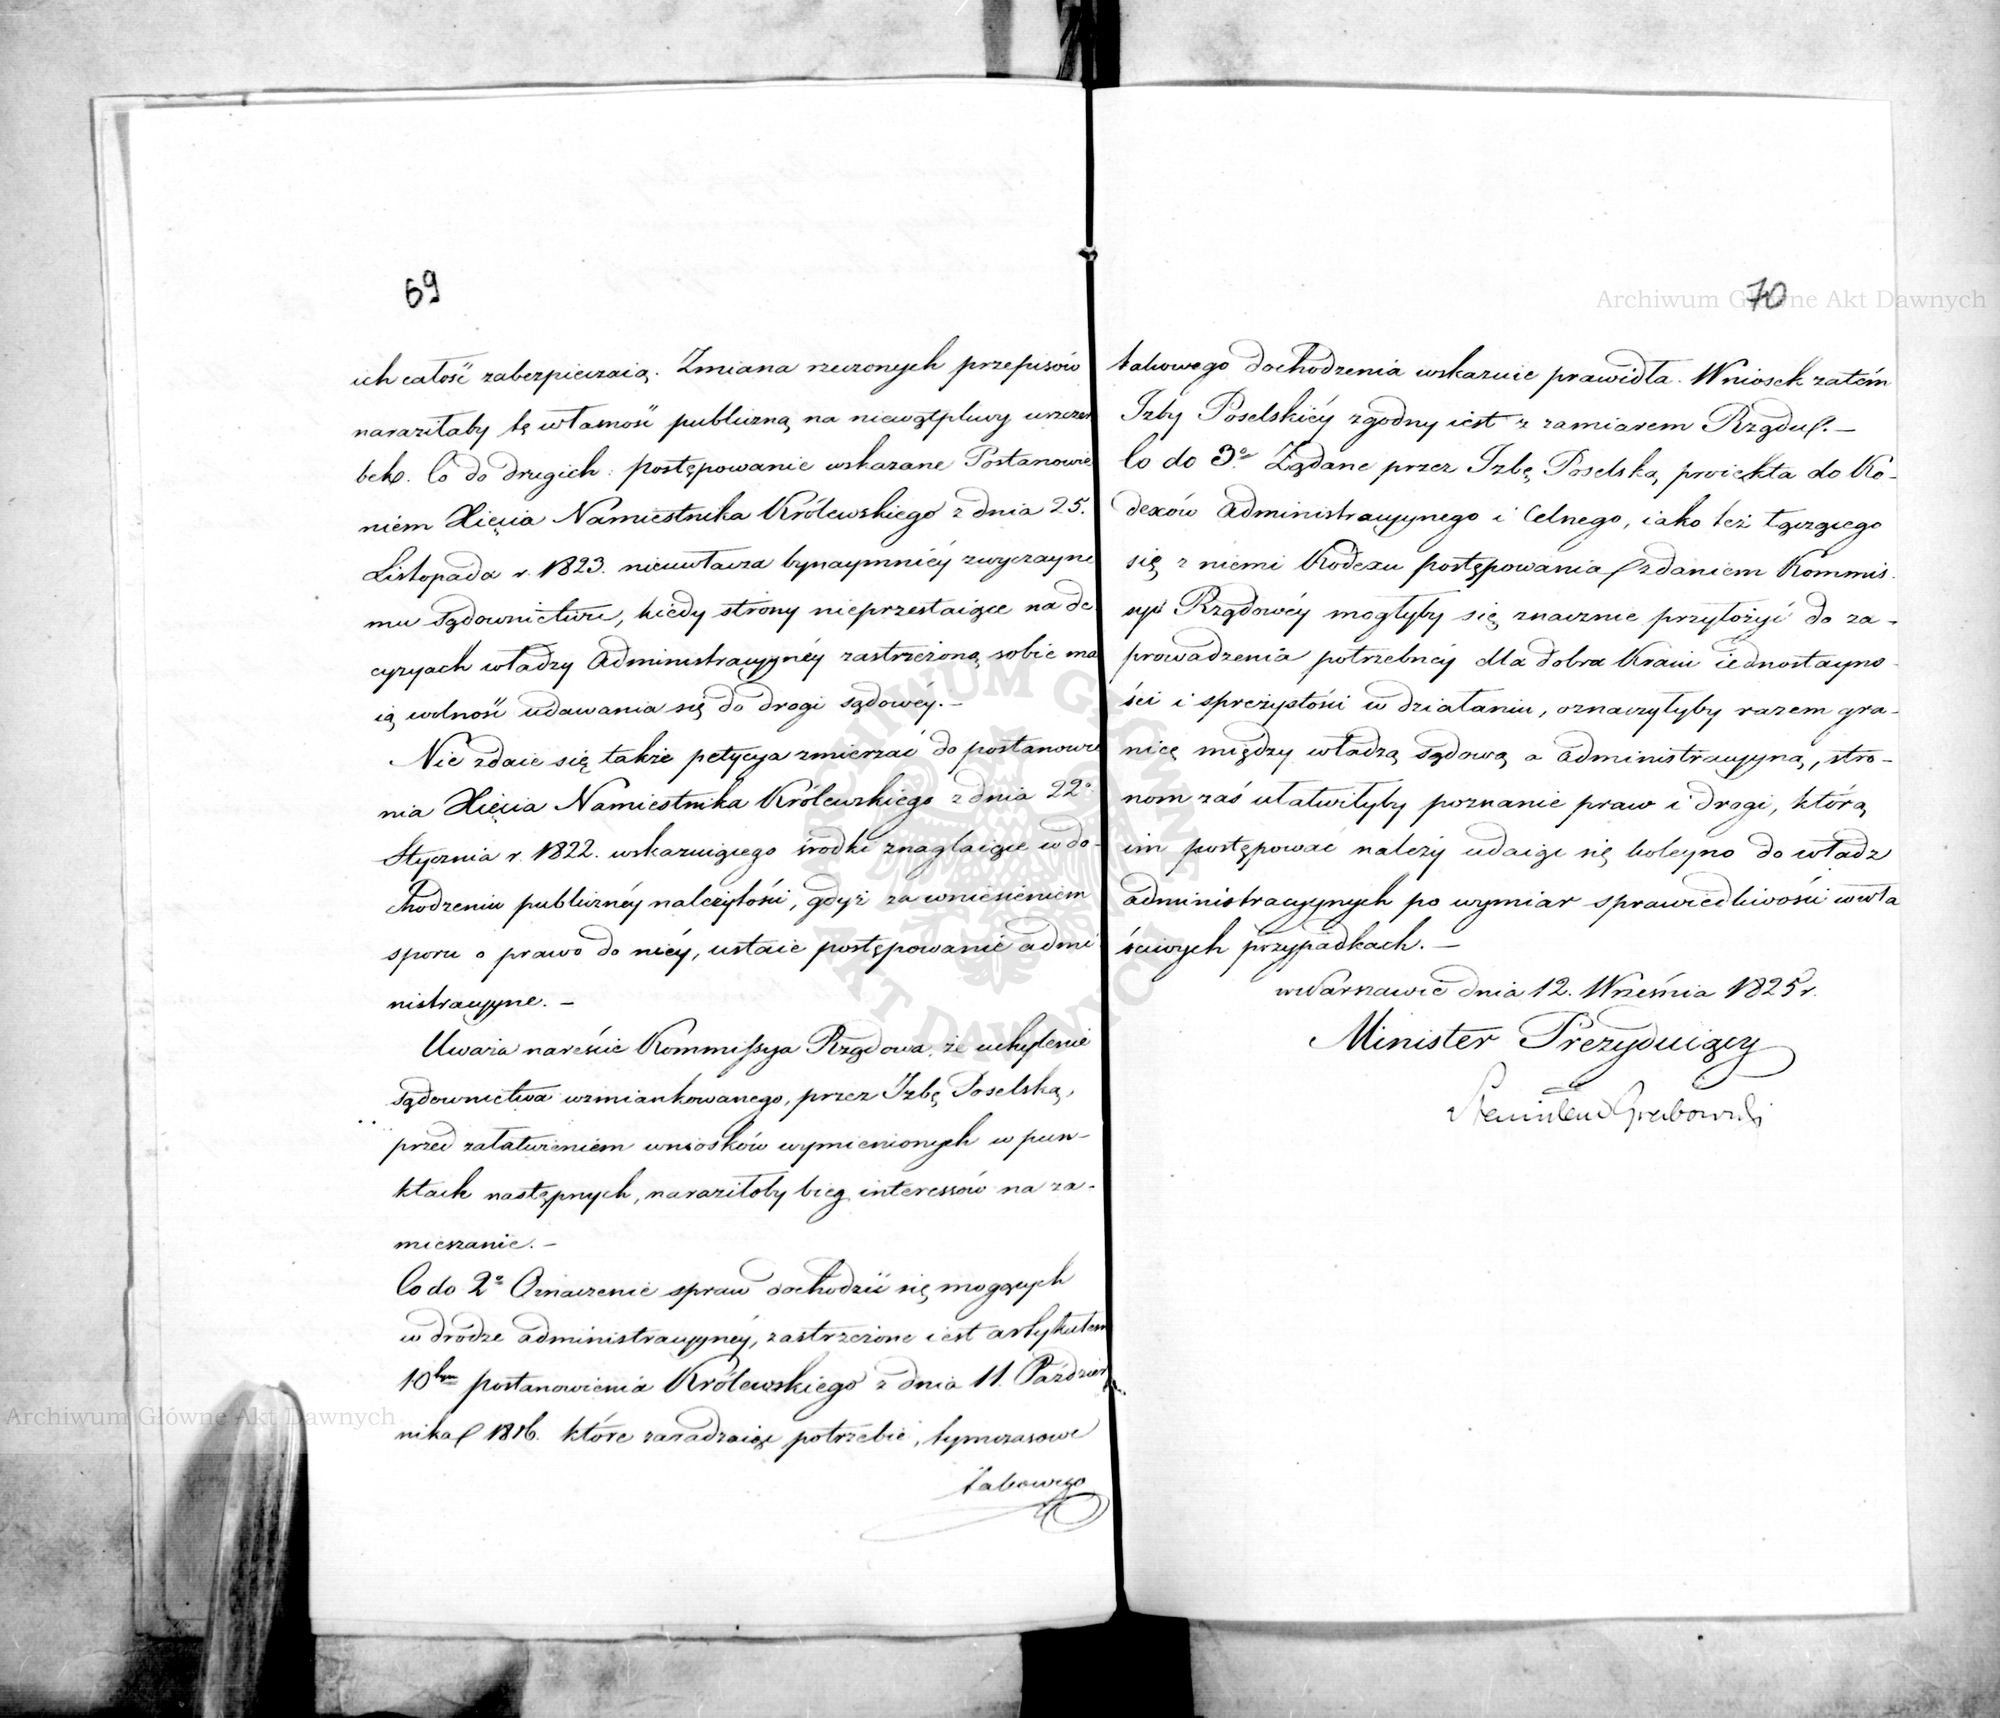 69
ich całość zabezpieczaią. Zmiana rzeczonych przepisów
naraziłaby tę własność publiczną na niewątpliwy uszczer
bek. Co do drugich: postępowanie wskazane Postanowie
niem Xięcia Namiestnika Królewskiego z dnia 25.
Listopada r. 1823. nieuwłacza bynaymniéy zwyczayne
mu sądownictwu, kiedy strony nieprzestaiące na de
cyzyach władzy Administracyynéy zastrzeżoną sobie ma
ią wolność udawania się do drogi sądowéy. –
Nie zdaie się także petycya zmierzać do postanowie
nia Xięcia Namiestnika Królewskiego z dnia 22º
Stycznia r. 1822. wskazuiącego środki znaglaiące w do-
chodzeniu publicznéy należytości, gdyż za wniesieniem
sporu o prawo do niéy, ustaie postępowanie admi
nistracyyne. –
Uważa nareście Kommissya Rządowa, że uchylenie
sądownictwa wzmiankowanego, przez Izbę Poselską,
przed załatwieniem wniosków wymienionych w pun-
ktach następnych, naraziłoby bieg interessów na za-
mieszanie. –
Co do 2º Oznaczenie spraw dochodzić się mogących
w drodze administracyynéy, zastrzeżone iest artykułem
10tym postanowienia Królewskiego z dnia 11. Paździer
nika 1816. które zaradzaiąc potrzebie, tymczasowe
takowego
70
takowego dochodzenia wskazuie prawidła. Wniosek zatém
Izby Poselskiéy zgodny iest z zamiarem Rządu. –
Co do 3º Żądane przez Izbę Poselską proiekta do Ko-
dexów Administracyynego i Celnego, iako też łączącego
się z niemi Kodexu postępowania zdaniem Kommis-
syi Rządowéy mogłyby się znacznie przyłożyć do za-
prowadzenia potrzebnéy dla dobra Kraiu iednostayno-
ści i sprężystości w działaniu, oznaczyłyby razem gra-
nicę między władzą sądową a administracyyną, stro-
nom zaś ułatwiłyby poznanie praw i drogi, którą
im postępować należy udaiąc się koleyno do władz
administracyynych po wymiar sprawiedliwości w wła
ściwych przypadkach. –
w Warszawie dnia 12. Września 1825 r.
Minister Prezyduiący
Stanisław Grabowski
Archiwum Główne Akt Dawnych
Archiwum Główne Akt Dawnych
ARCHIWUM GŁÓWNE AKT DAWNYCH